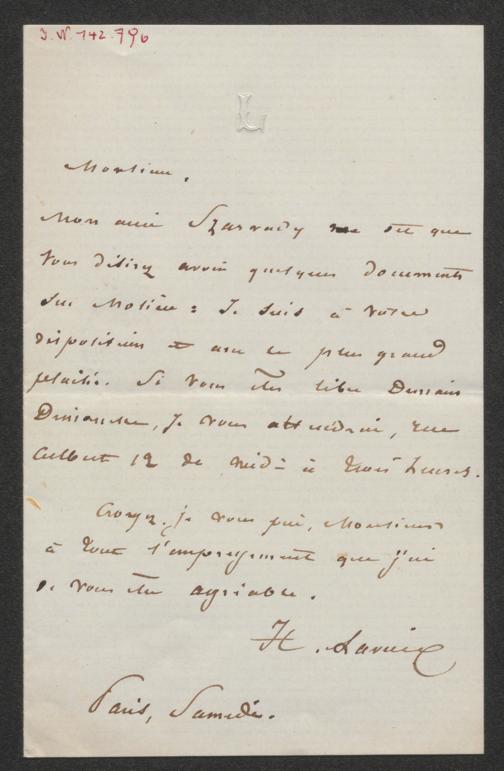 I.N. 142.796
L
Monsieur,
Mon ami Szarvady me dit que
vous désirez avoir quelques documents
sur Molière : Je suis à votre
disposition et avec le plus grand
plaisir. Si vous êtes libre Demain
Dimanche, Je vous attendrai, rue
Colbert 12 de midi à trois heures.
Croyez, je vous prie, Monsieur
à tout l'empressement que j'ai
de vous être agréable.
H. Lavoix
Paris, Samedi.